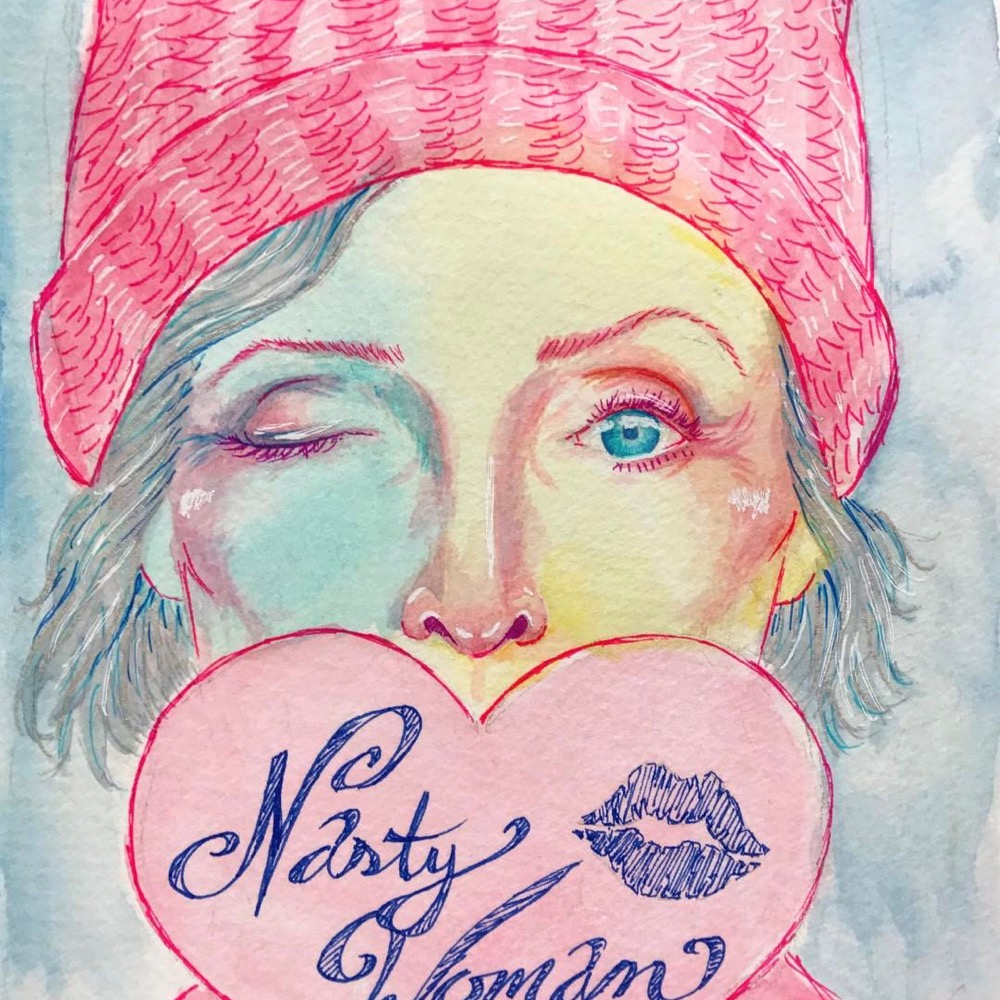 Nasty
Woman